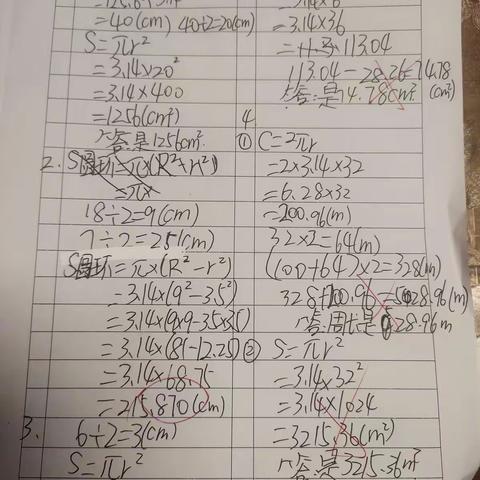 =40(cm) 40÷2=20(cm)
S=πr²
=3.14×20²
=3.14×400
=1256(cm²)
答:是1256cm².
2. S圆环=π×(R²-r²)
=π×
18÷2=9(cm)
7÷2=25(cm)
S圆环=π×(R²-r²)
=3.14×(9²-3.5²)
=3.14×(9×9-3.5×3.5)
=3.14×(81-12.25)
=3.14×68.75
=215.870(cm)
3. 6÷2=3(cm)
S=πr²
=3.14×36
=113.04
113.04-28.26=74.78
答:是14.78cm². (cm²)
4.
① C=2πr
=2×3.14×32
=6.28×32
=200.96(m)
32×2=64(m)
(100+64)×2=328(m)
328+200.96=5028.96(m)
答:周长是528.96m
② S=πr²
=3.14×32²
=3.14×1024
=3215.36(m²)
答:是3215.36m²